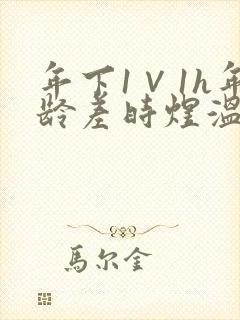 年下1V1h年
龄差时煌温
馬尔金